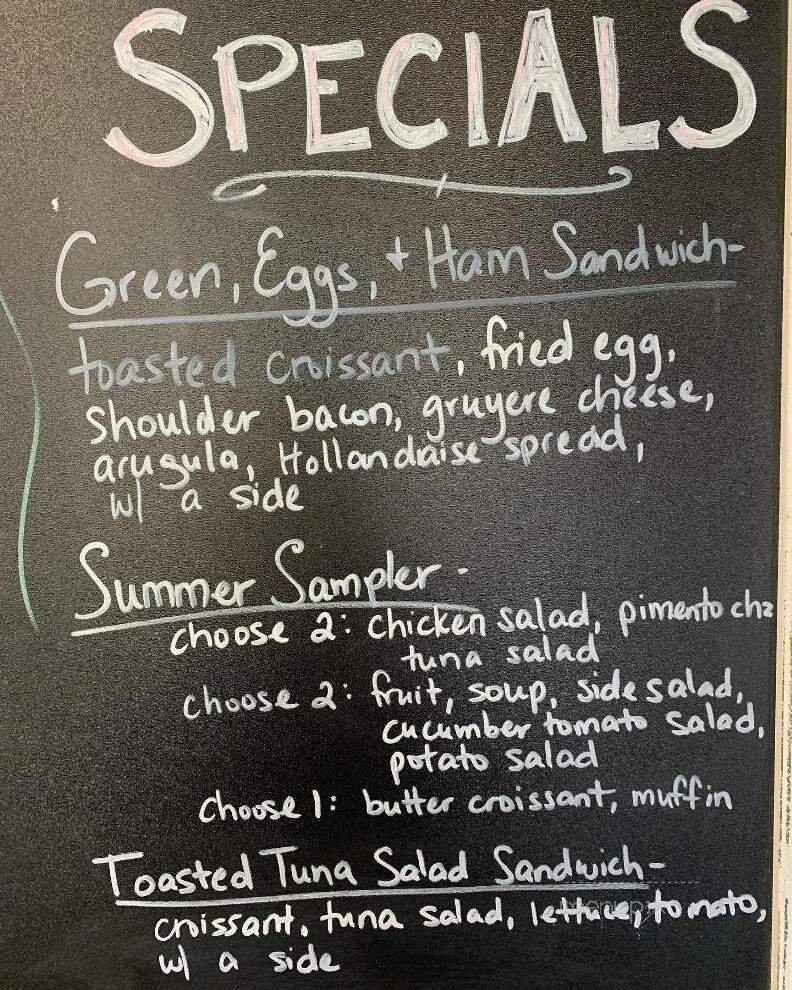 SPECIALS
Green, Eggs, + Ham Sandwich-
toasted croissant, fried egg,
shoulder bacon, gruyere cheese,
arugula, Hollandaise spread,
w/ a side
Summer Sampler -
choose 2: chicken salad, pimento chz
tuna salad
choose 2: fruit, soup, side salad,
cucumber tomato salad,
potato salad
choose 1: butter croissant, muffin
Toasted Tuna Salad Sandwich-
croissant, tuna salad, lettuce, tomato,
w/ a side